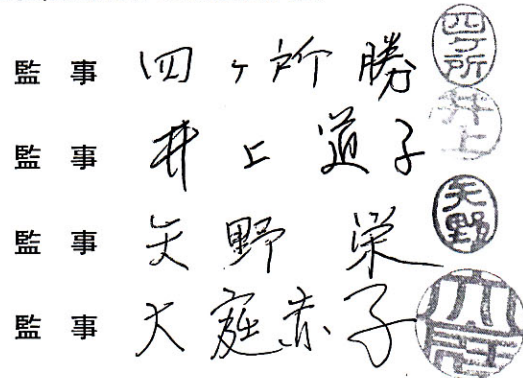 監 事 四ヶ所 勝 四ヶ所
監 事 井上 道子 井上
監 事 矢野 栄 矢野
監 事 大庭 赤子 大庭